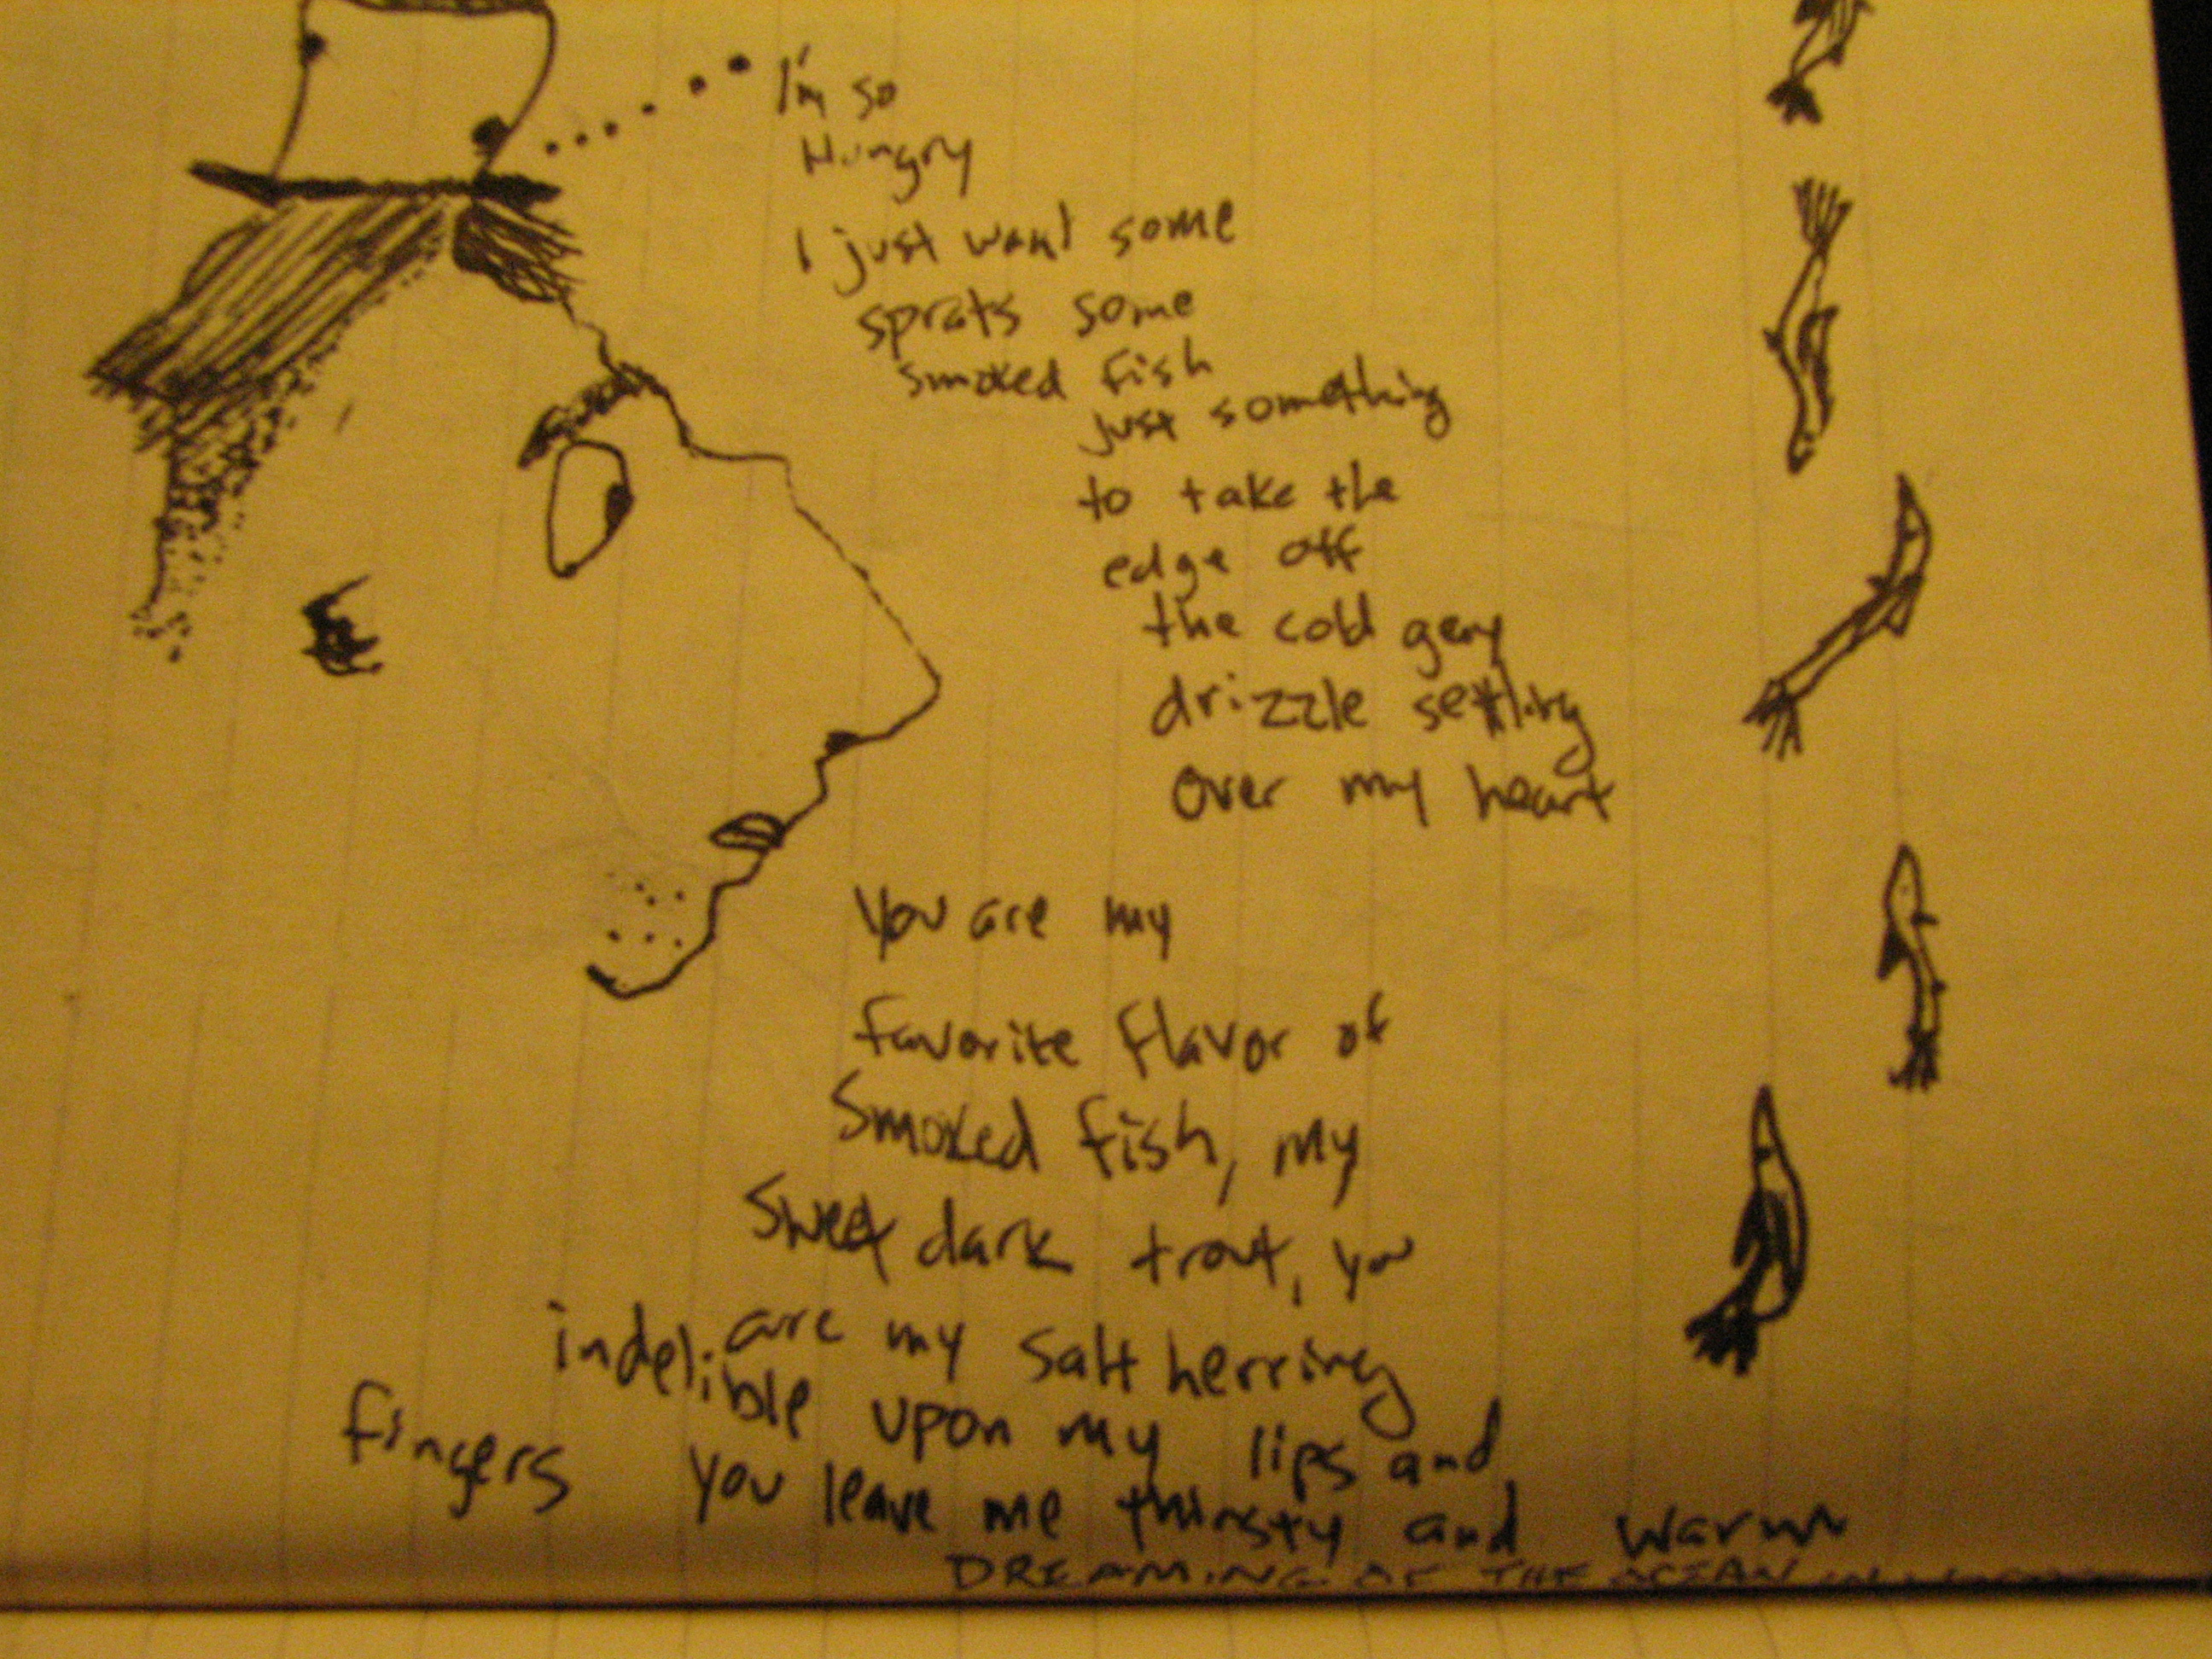 I'm so
Hungry
I just want some
sprats some
smoked fish
just something
to take the
edge off
the cold gery
drizzle settling
over my heart
You are my
favorite flavor of
Smoked fish, my
Sweet dark trout, you
are my salt herring
indelible upon my lips and
fingers you leave me thirsty and warm
DREAMING OF THE OCEAN IN